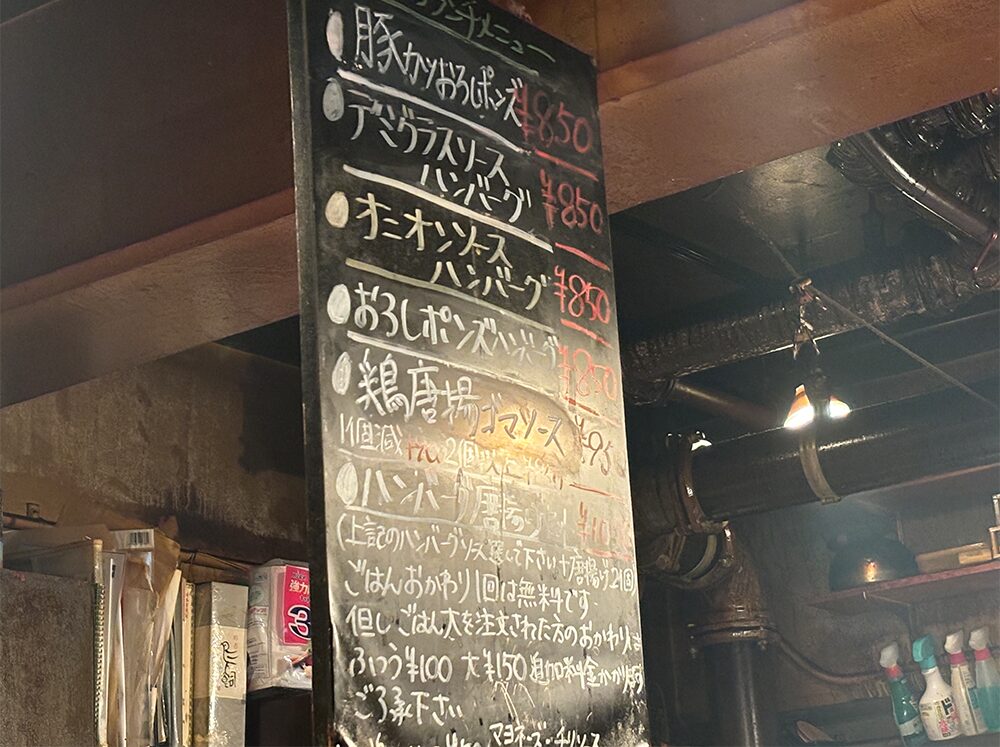 ランチメニュー
豚カツおろしポンズ ¥850
デミグラスソース
ハンバーグ ¥850
オニオンソース
ハンバーグ ¥850
おろしポンズハンバーグ ¥850
鶏唐揚ゴマソース ¥95
1個減
ハンバーグ唐揚
(上記のハンバーグソース選んで下さい+唐揚げ2個)
ごはんおかわり1回は無料です
但しごはん大を注文された方のおかわりは
ふつう¥100 大¥150 追加料金かかります
ご了承下さい
マヨネーズ・チリソース
強力
3